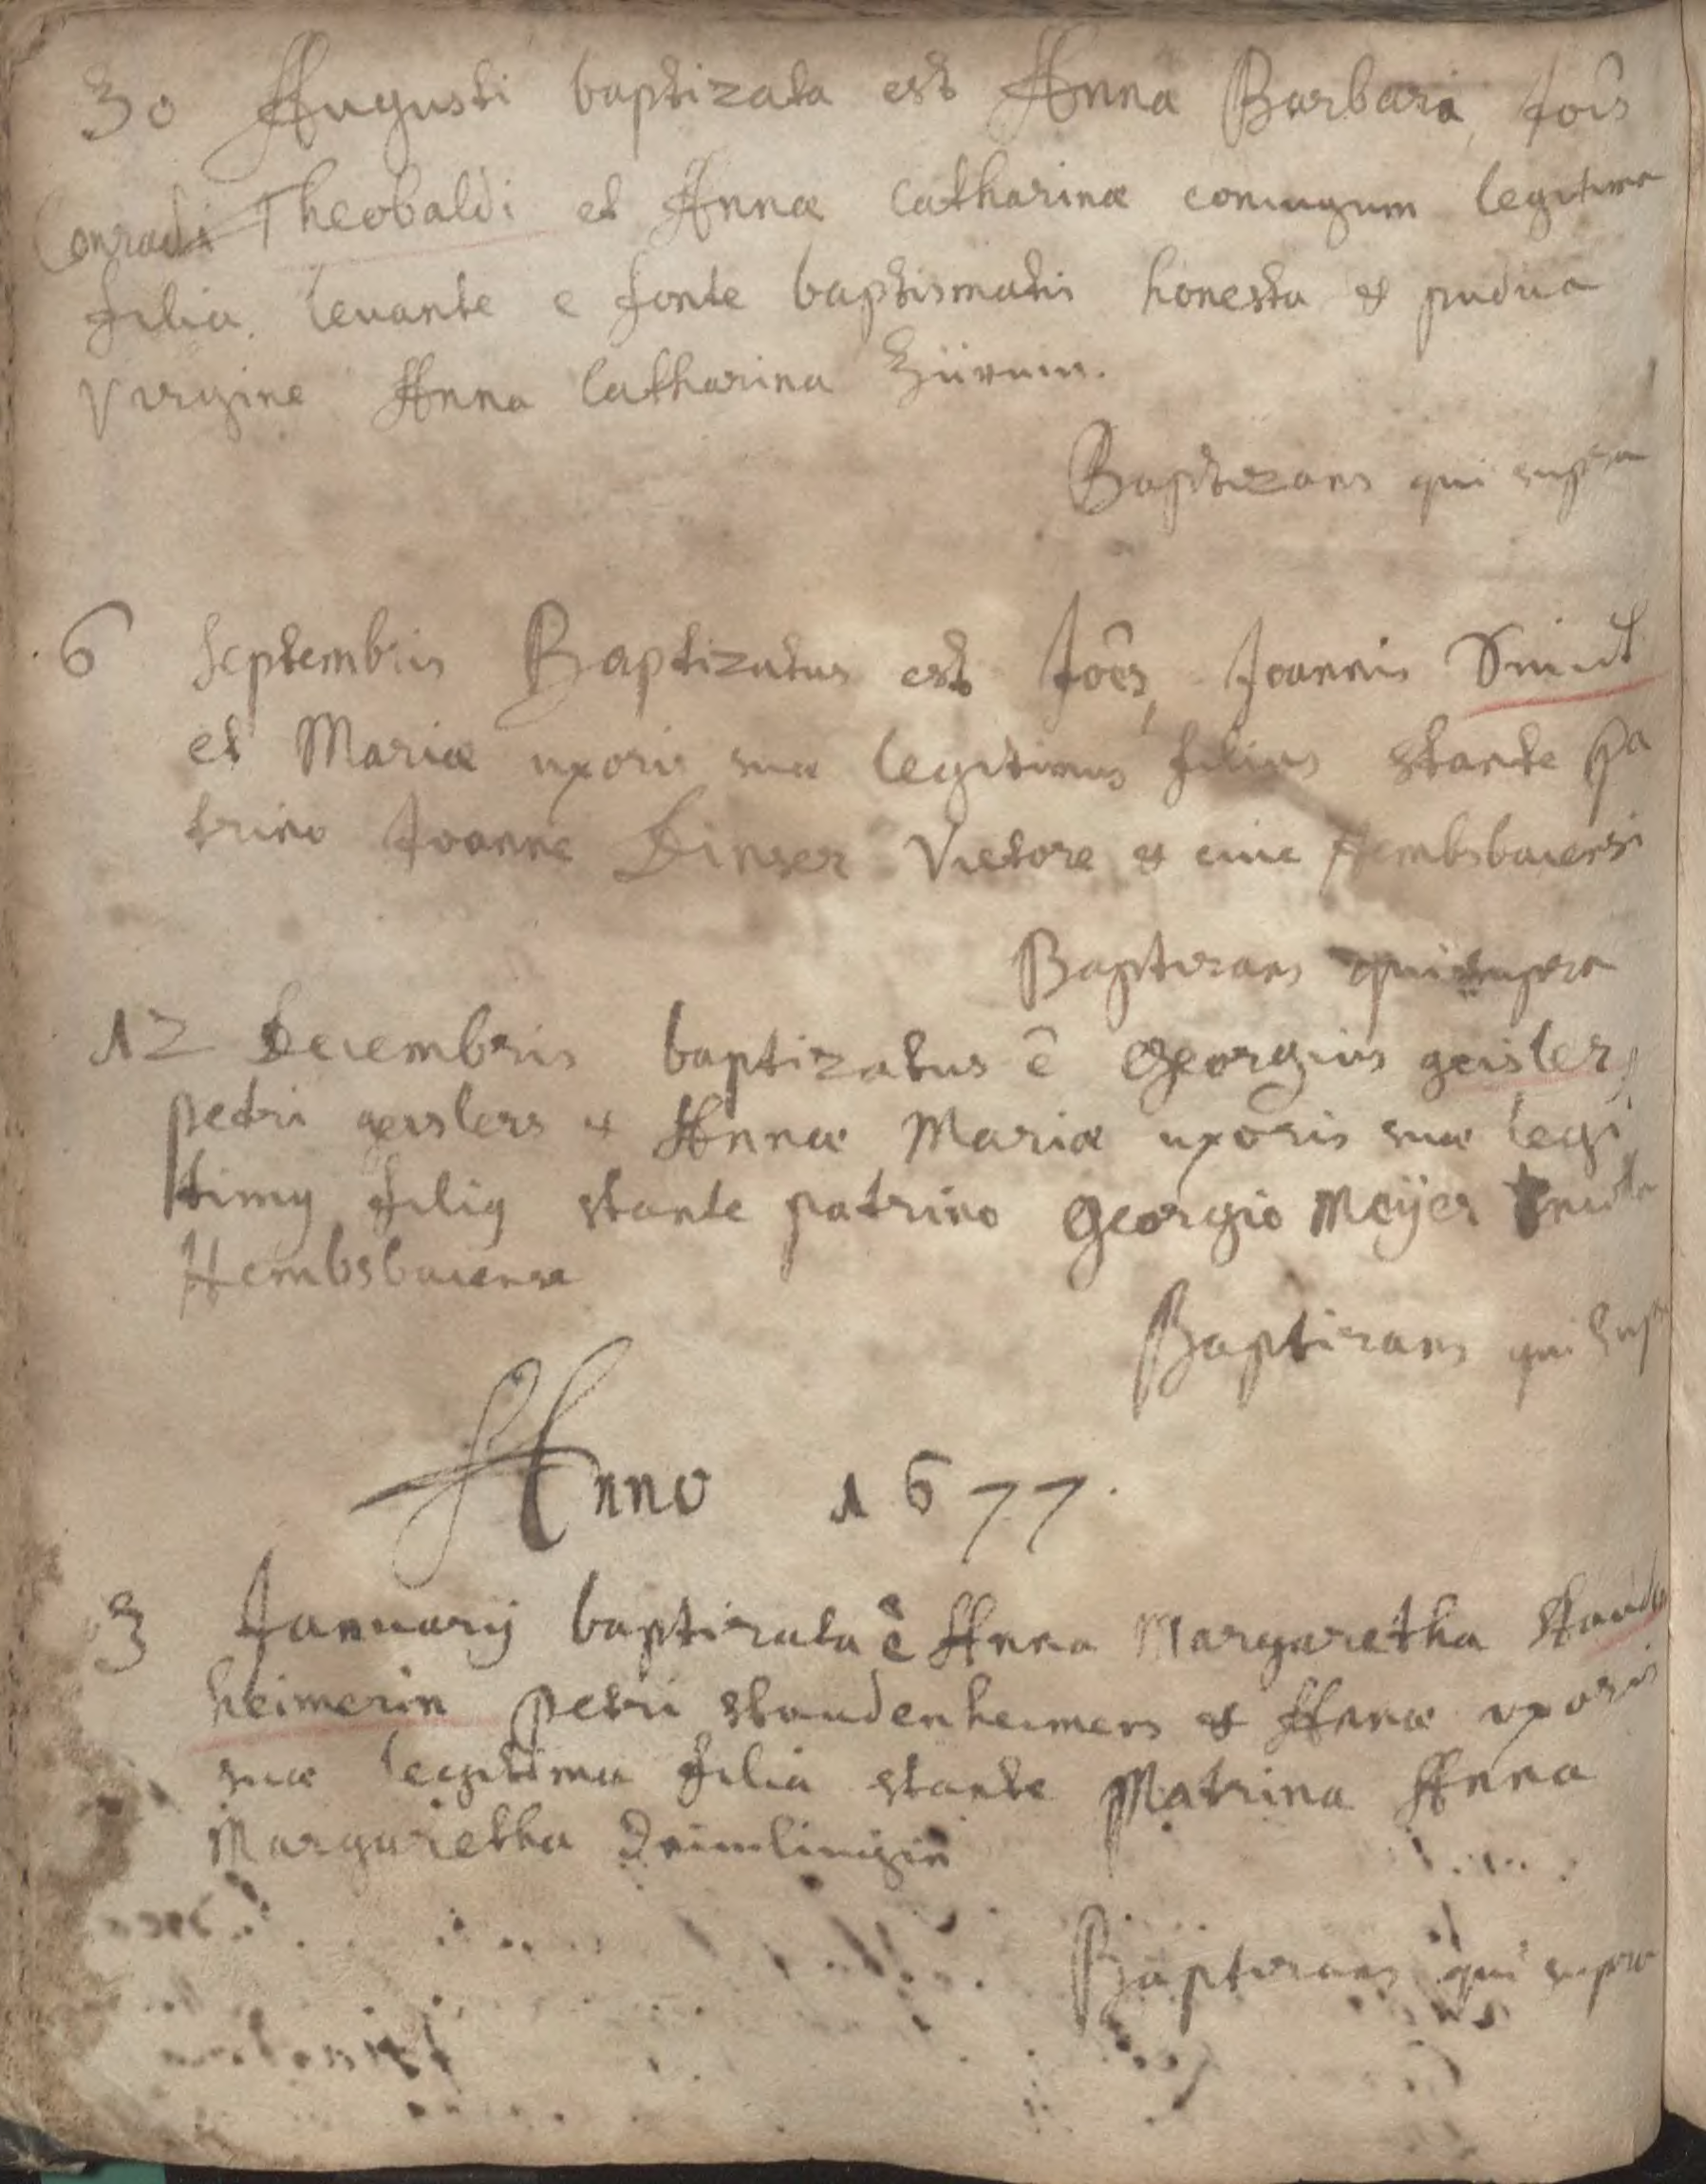 30 Augusti baptizata est Anna Barbara, Jois
Conradi Theobaldi et Annæ Catharinæ coniugum legitima
filia. levante e fonte baptismatis honesta et pudica
Virgine Anna Catharina
Baptizans qui supra
6 Septembris Baptizatus est Joês, Joannis
et Mariæ uxoris suæ legitimus filius stante Pa
trino Joanne Dinser Vietore et cive Hembsbacensi
Baptizans qui supra
12 Decembris baptizatus ê Georgius geisler,
petri geislers et Annæ Mariæ uxoris suæ legi
timus filius stante patrino Georgio Meÿer
Hembsbacense
Baptizans qui supra
Anno 1677.
3 Januarij baptizata ê Anna Margaretha Stauden
heimerin petri staudenheimers et Annæ uxoris
suæ legitima filia stante Matrina Anna
Margaretha
Baptizans qui supra